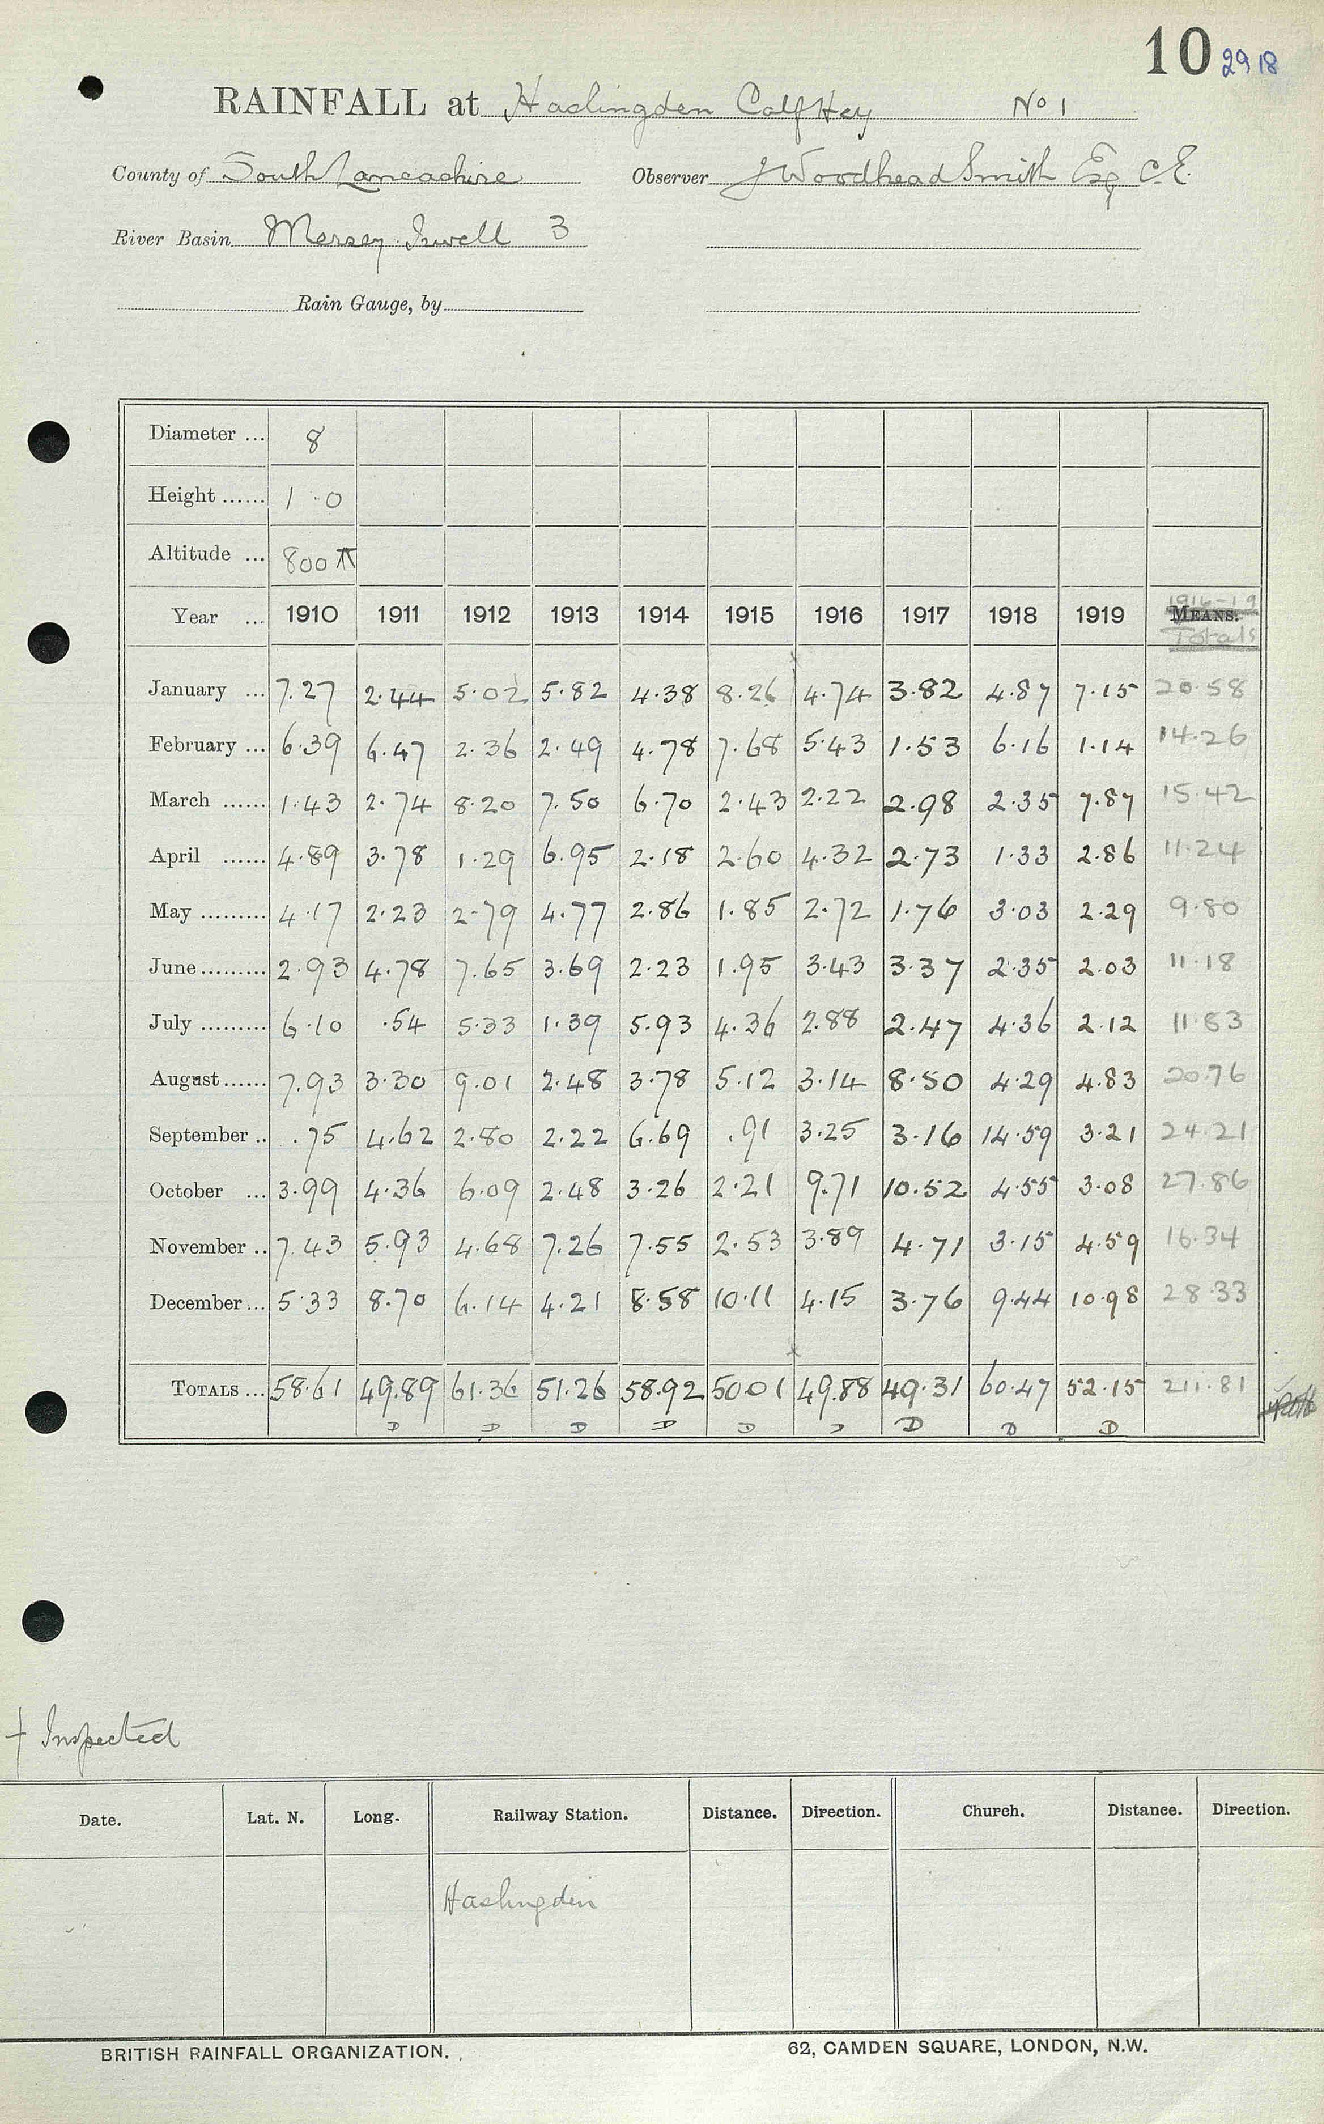 10 2918
RAINFALL at Haslingden Calf Hey No 1
County of South Lancashire Observer J Woodhead Smith Esq C.E.
River Basin Mersey. Irwell 3
Rain Gauge, by
Diameter ... 8
Height ...... 1 - 0
Altitude ... 800 ft
Year ... 1910 1911 1912 1913 1914 1915 1916 1917 1918 1919 1916-19 MEANS. Totals
January ... 7.27 2.44 5.02 5.82 4.38 8.26 4.74 3.82 4.87 7.15 20.58
February ... 6.39 6.47 2.36 2.49 4.78 7.68 5.43 1.53 6.16 1.14 14.26
March ...... 1.43 2.74 8.20 7.50 6.70 2.43 2.22 2.98 2.35 7.87 15.42
April ...... 4.89 3.78 1.29 6.95 2.18 2.60 4.32 2.73 1.33 2.86 11.24
May ......... 4.17 2.23 2.79 4.77 2.86 1.85 2.72 1.76 3.03 2.29 9.80
June ......... 2.93 4.78 7.65 3.69 2.23 1.95 3.43 3.37 2.35 2.03 11.18
July ......... 6.10 .54 5.33 1.39 5.93 4.36 2.88 2.47 4.36 2.12 11.83
August ...... 7.93 3.30 9.01 2.48 3.78 5.12 3.14 8.50 4.29 4.83 20.76
September .. .75 4.62 2.80 2.22 6.69 .91 3.25 3.16 14.59 3.21 24.21
October ... 3.99 4.36 6.09 2.48 3.26 2.21 9.71 10.52 4.55 3.08 27.86
November .. 7.43 5.93 4.68 7.26 7.55 2.53 3.89 4.71 3.15 4.59 16.34
December ... 5.33 8.70 6.14 4.21 8.58 10.11 4.15 3.76 9.44 10.98 28.33
TOTALS ... 58.61 49.89 61.36 51.26 58.92 50.01 49.88 49.31 60.47 52.15 211.81
D D D D D D D D D
+ Inspected
Date. Lat. N. Long. Railway Station. Distance. Direction. Church. Distance. Direction.
Haslingden
BRITISH RAINFALL ORGANIZATION. 62, CAMDEN SQUARE, LONDON, N.W.